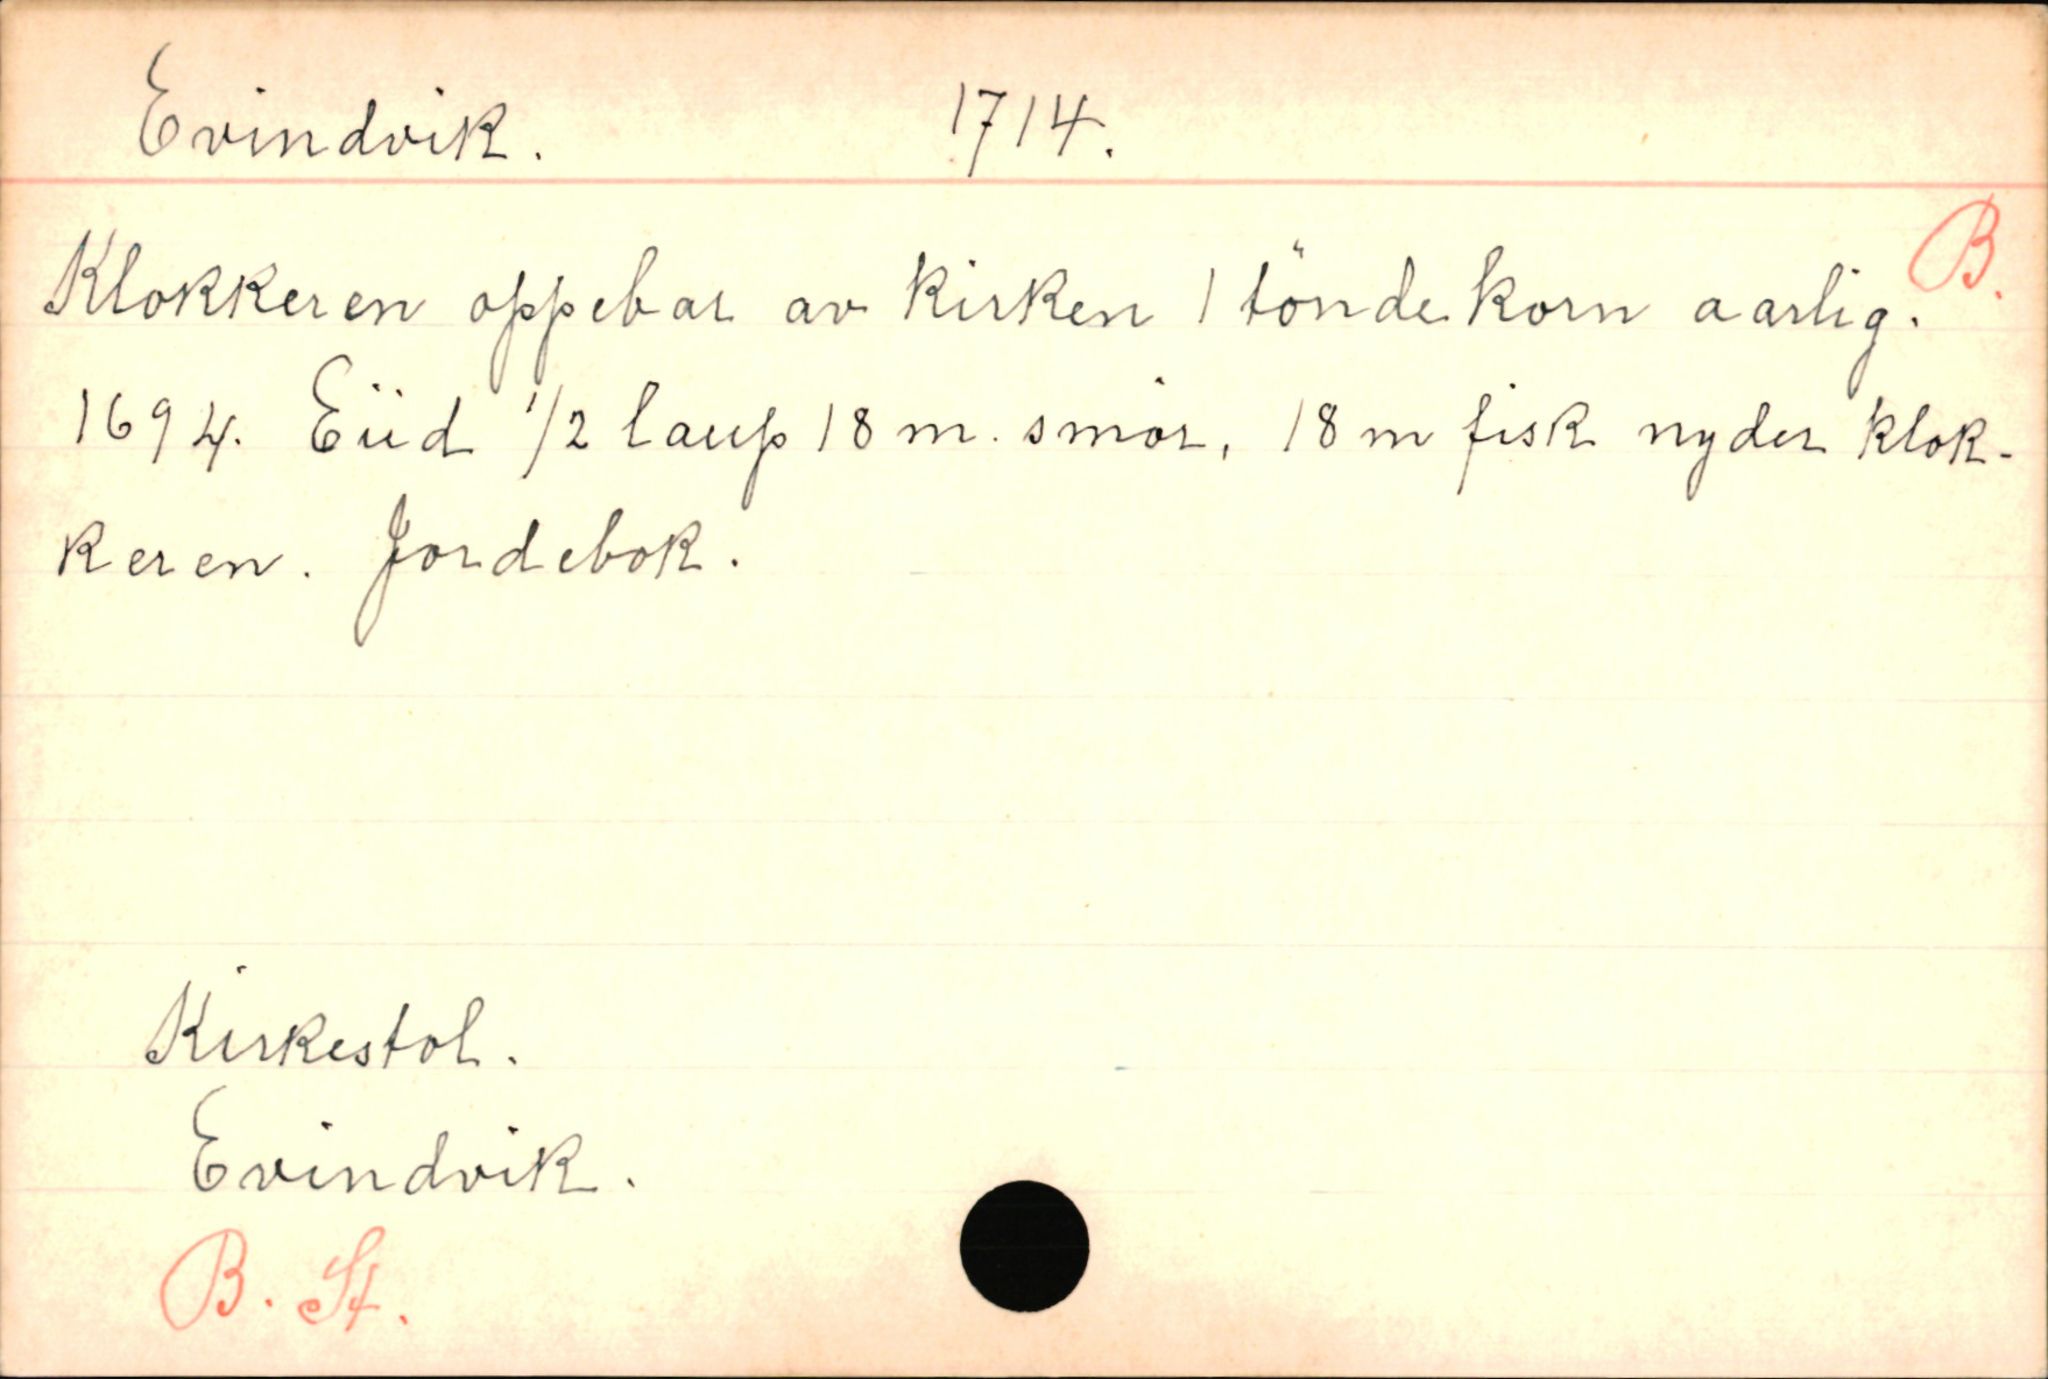 Evindvik. 1714.
B.
Klokkeren oppebar av kirken 1 tönde korn aarlig.
1694. Eiid 1/2 laup 18 m. smör, 18 m fisk nyder klok-
keren. Jordebok.
Kirkestol.
Evindvik.
B. St.